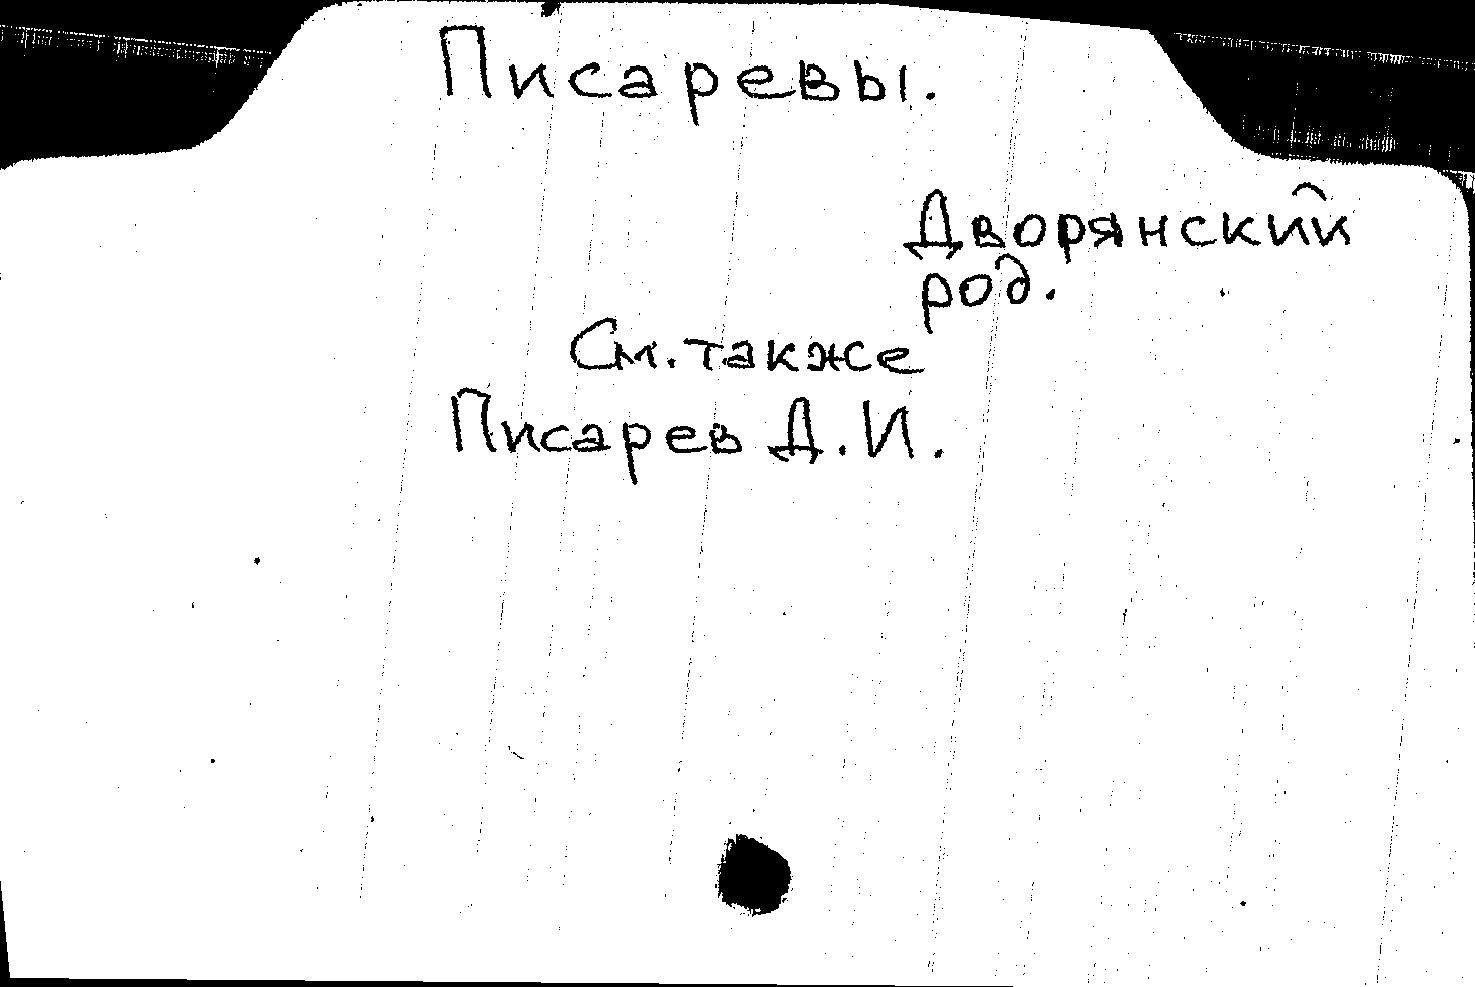 Писаревы.
Дворянский
род.
См. также
Писарев Д. И.